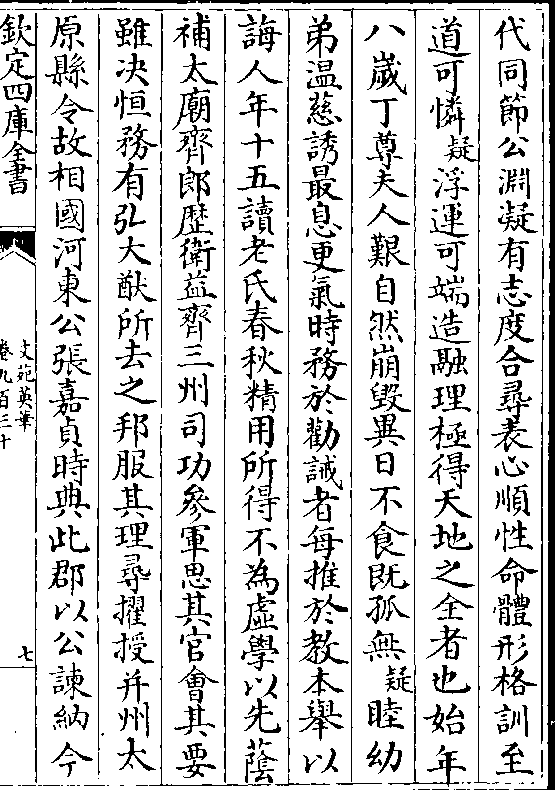 代同節公淵凝有志度合尋表心順性命體形格訓至
道可憐疑浮運可端造融理極得天地之全者也始年
八歲丁尊夫人艱自然崩毀異日不食既孤無疑睦幼
弟温慈誘最息更氣時務於勸誡者每推於教本舉以
誨人年十五讀老氏春秋精用所得不為虛學以先蔭
補太廟齊郎歷衛益齊三州司功參軍思其官會其要
雖决恒務有弘大猷所去之邦服其理尋擢授并州太
原縣令故相國河東公張嘉貞時典此郡以公諫納今
欽定四庫全書
文苑英華
卷九百三十
七